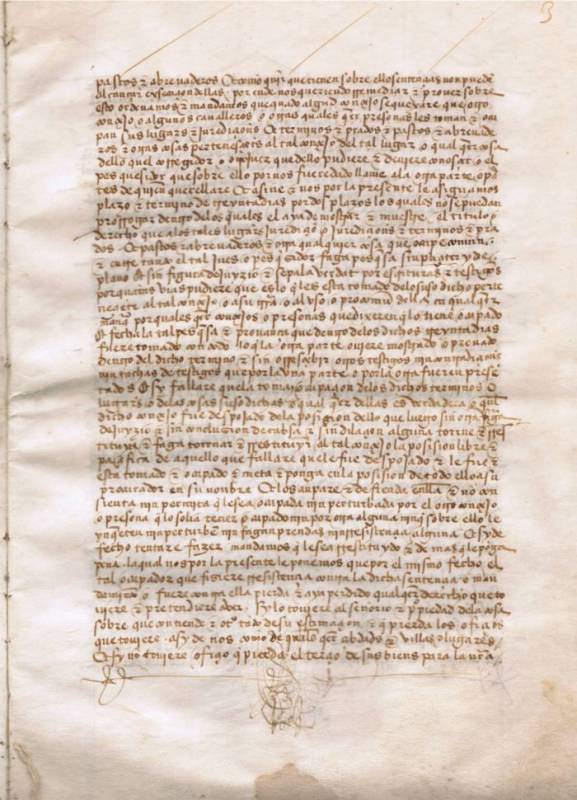 3
pastos & abrevaderos & como quier que tienen sobre ello sentençias non pueden
alcançar exsecuçion dellas por ende nos queriendo rremediar & proveer sobre
esto ordenamos & mandamos que quando algund conçejo se quexare que otro
conçejo o algunos cavalleros o otras quales quier presonas les toman & ocu
pan sus lugares & juridiçions & terminos & prados & pastos & abrevade
ros & otras cosas pertenesçientes al tal conçejo del tal lugar o qual quier cosa
dello que el corregidor o juez que dello pudiere & deviere conosçer o el
pesquesidor que sobre ello por nos fuere dado llame a la otra parte o par
tes de quien querellare & asine & nos por la presente le asignamos
plazo & termino de treynta dias por dos plazos los quales non se puedan
prorrogar dentro de los quales el aya de mostrar & muestre el titulo o
derecho que a los tales lugares juridiçion o juridiçions & terminos & pra
dos & pastos & abrevaderos & otra qual quier cosa que
& entre tanto el tal juez o pesquesidor faga pesquisa sinplemente & de
plano & sin figura de juyzio & sepa la verdat por escripturas & testigos
por quantas vias pudiere que es lo que les esta tomado de lo suso dicho perte
nesçiente al tal conçejo o a su tierra o al uso o pro comun della en qual quier
manera por quales quier conçejos o presonas que dixeren que lo tiene ocupado
& fecha la tal pesquisa & provança que dentro de los dichos treynta dias
fuere tomado con lo que la otra parte oviere mostrado o provado
dentro del dicho termino & sin rresçebir otros testigos nin contradiçiones
nin tachas de testigos que por la una parte o por la otra fueren presen
tados & sy fallare que la toma o ocupaçion de los dichos terminos &
lugares o de las cosas suso dichas o qual quier dellas es verdadera & que el
dicho conçejo fue despojado de la posesion dello que luego sin otra figura
de juyzio & sin conclusion de cabsa & sin dilaçion alguna torne & rres
tituya & faga tornar & rrestituyr al tal conçejo la posision libre &
paçifica de aquello que fallare que le fue despojado & le fue &
esta tomado & ocupado & meta & ponga en la posision de todo ello a su
procurador en su nombre & los anpare & defienda en ella & non con
sienta nin permita que le sea ocupada nin perturbada por el otro conçejo
o presona que lo solia tener ocupado nin por otra alguna nin que sobre ello le
ynquieten nin perturben nin fagan prendas nin rresistençia alguna & sy de
fecho tentare fazer mandamos que le sea rrestituydo & de mas le ponga
pena la qual nos por la presente le ponemos que por el mismo fecho el
tal ocupador que fiziere rresistençia contra la dicha sentençia o man
damiento o fuere contra ella pierda & aya perdido qual quier derecho que to
viere & pretendiere aver sy lo toviere al señorio & propiedad de la cosa
sobre que contiende & otro tanto de su estimaçion & que pierda los ofiçios
que toviere asy de nos como de quales quier çibdades & villas o lugares
& sy no toviere ofiçio que pierda el terçio de sus bienes para la nuestra